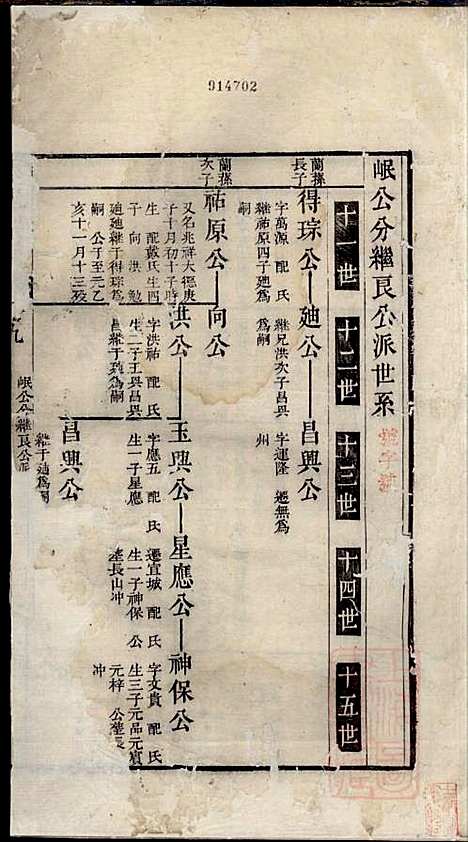 914702
岷公分繼良公派世系
十一世
十二世
十三世
十四世
十五世
蘭孫
長子
得琮公
廸公
昌興公
字萬源 配氏
繼祐原四子廸爲
嗣
繼兄洪次子昌興
爲嗣
字運隆 遷無爲
州
蘭孫
次子
祐原公
向公
又名兆祥大德庚
子十月初十子時
生 配戴氏生四
子 向 洪 勉
廸廸繼于得琮爲
嗣 公子至元乙
亥十一月十三歿
洪公
玉興公
星應公
神保公
字洪祐 配氏
生二子玉興昌興
昌繼于廸爲嗣
字應五 配氏
生一子星應
遷宣城 配氏
生一子神保 公
塟長山冲
字文貴 配氏
生三子元品元寶
元梓 公塟長
冲
昌興公
繼于廸爲嗣
岷公分繼良公派